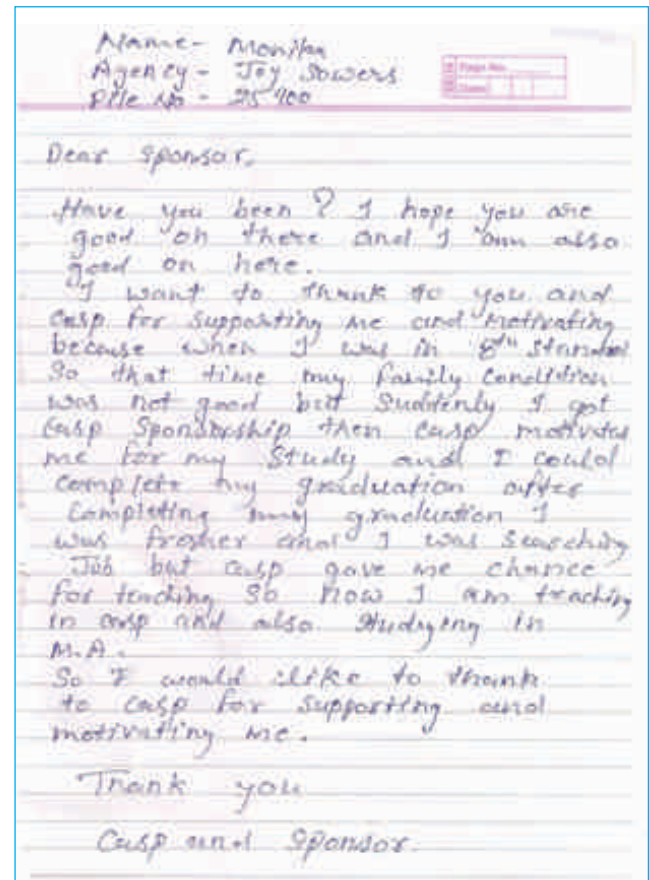 Name- Monika
Agency - Joy Sowers
File No - 25700
Page No.
Date
Dear Sponsor,
Have you been ? I hope you are
good on there and I am also
good on here.
I want to thank to you and
Casp for supporting me and Motivating
because when I was in 8th standard
So that time my family Condition
was not good but Suddenly I got
Casp Sponsorship then Casp motivates
me for my Study and I could
complete my graduation after
Completing my graduation I
was fresher and I was Searching
Job but casp gave me chance
for teaching So now I am teaching
in casp and also Studying in
M.A.
So I would like to thank
to Casp for Supporting and
motivating me.
Thank you
Casp and Sponsor.